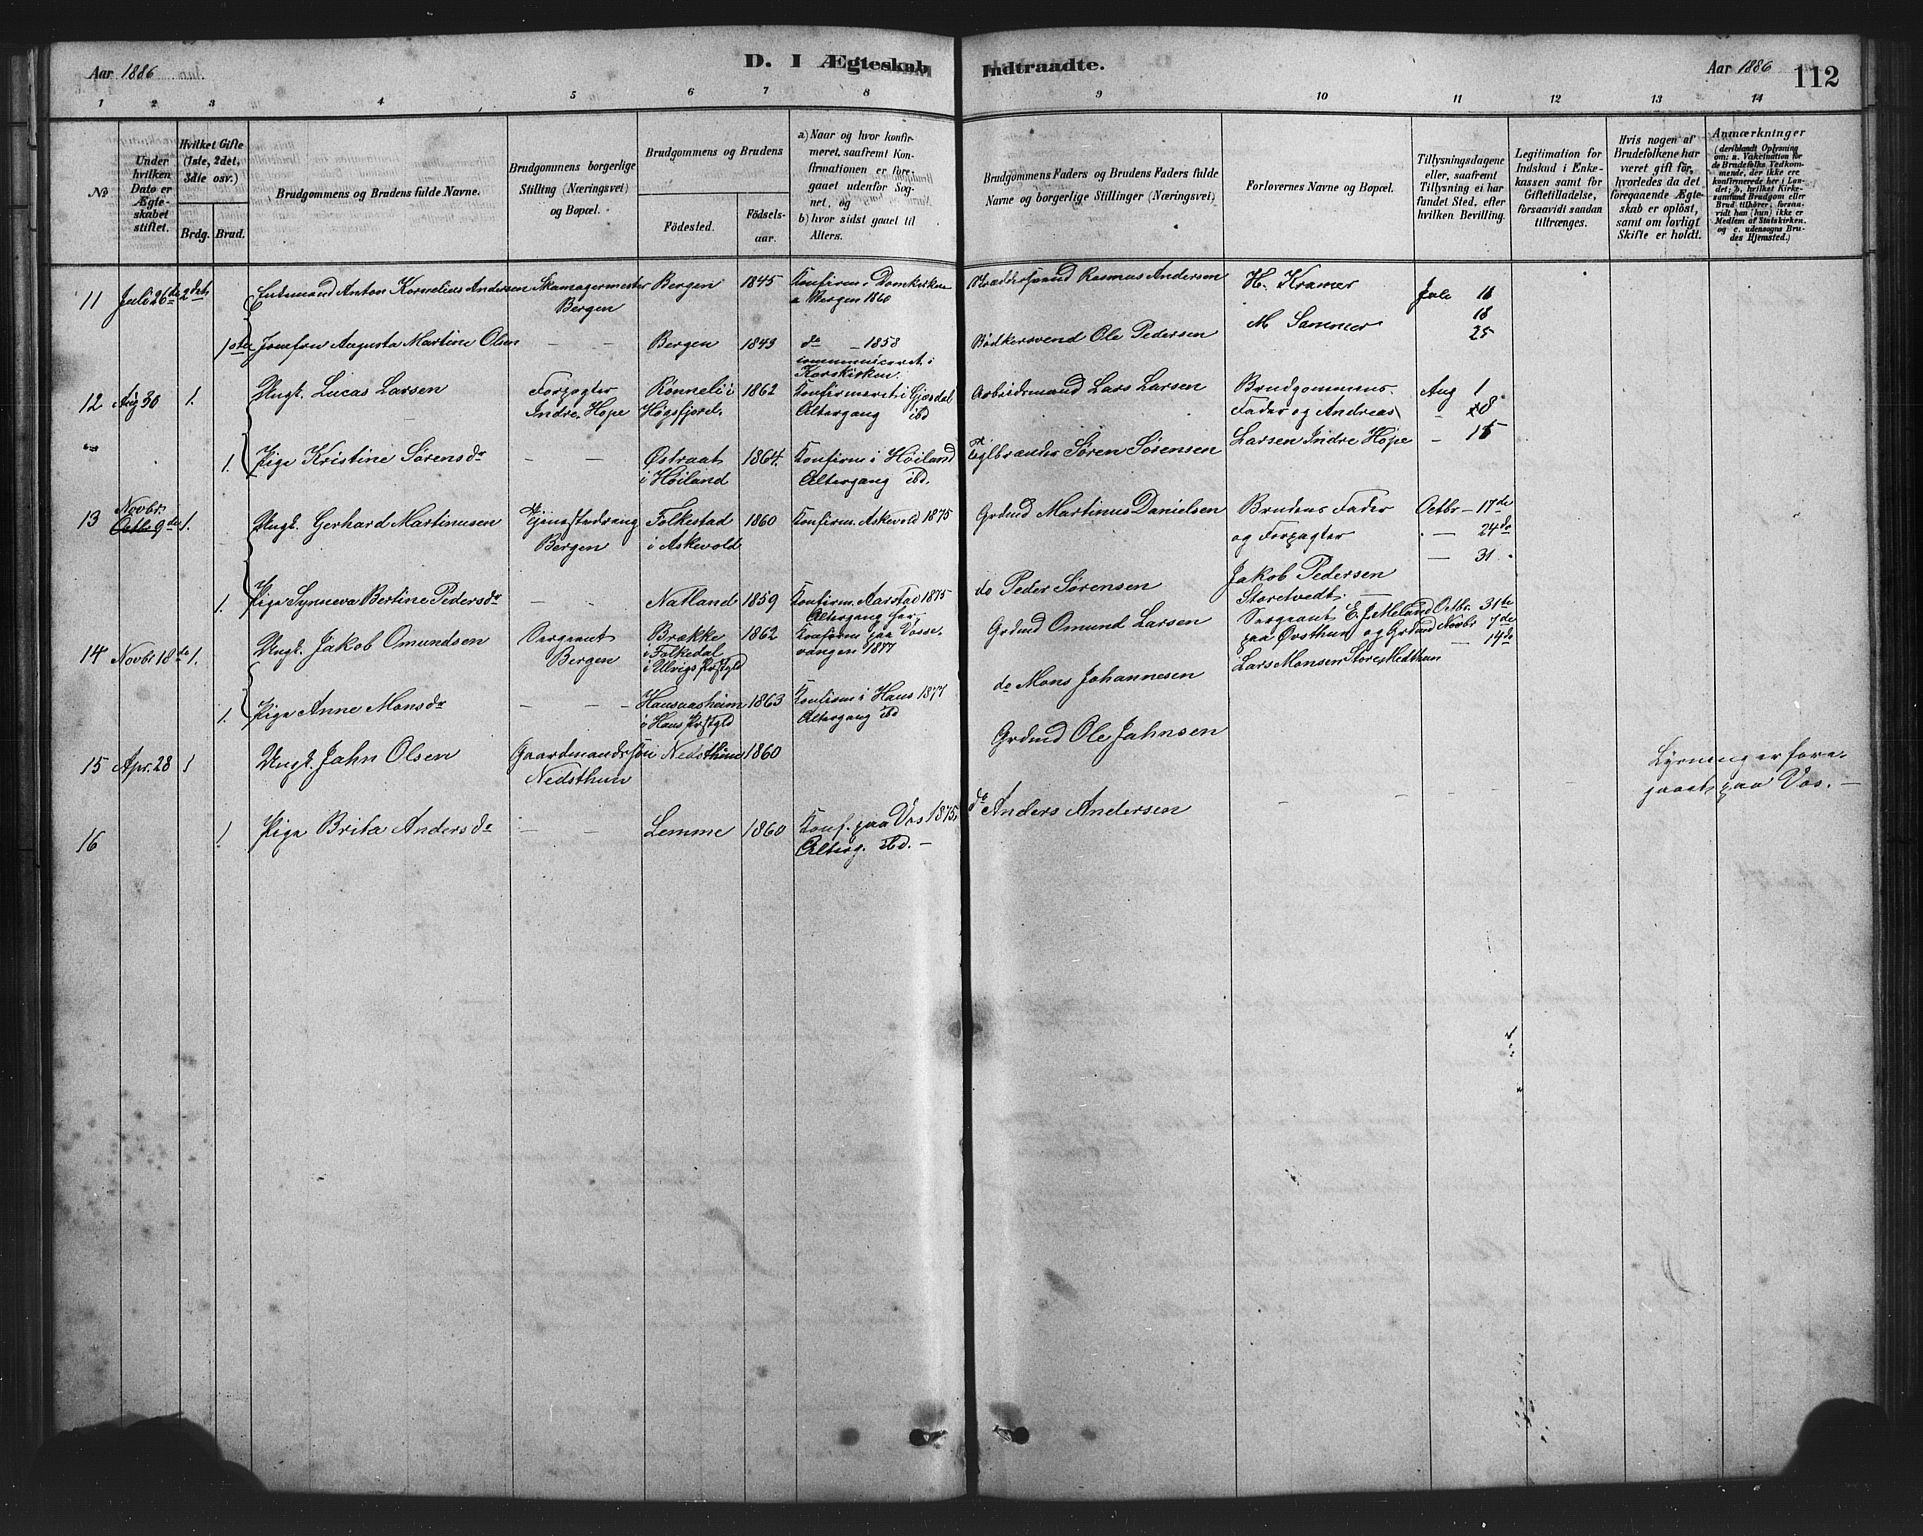 Aar 1886
D. I Ægteskab Indtraadte.
Aar 1886
112
1 2 3 4 5 6 7 8 9 10 11 12 13 14
No
Under hvilken Dato er Ægteskabet stiftet.
Hvilket Gifte (1ste, 2det, 3die osv.)
Brdg. Brud.
Brudgommens og Brudens fulde Navne.
Brudgommens borgerlige Stilling (Næringsvei) og Bopæl.
Brudgommens og Brudens
Födested.
Födselsaar.
a) Naar og hvor konfirmeret, saafremt Konfirmationen er foregaaet udenfor Sognet, og
b) hvor sidst gaaet til Alters.
Brudgommens Faders og Brudens Faders fulde Navne og borgerlige Stillinger (Næringsvei)
Forlovernes Navne og Bopæl.
Tillysningsdagene eller, saafremt Tillysning ei har fundet Sted, efter hvilken Bevilling.
Legitimation for Indskud i Enkekassen samt for Giftetilladelse, forsaavidt saadan tiltrænges.
Hvis nogen af Brudefolkene har været gift för, hvorledes da det foregaaende Ægteskab er oplöst, samt om lovligt Skifte er holdt.
Anmærkninger (deriblandt Oplysning om: a. Vakcination for de Brudefolks Vedkommende, der ikke ere konfirmerede her i Landet; b. hvilket Kirkesamfund Brudgom eller Brud tilhörer, forsaavidt han (hun) ikke er Medlem af Statskirken, og c. udensogns Brudes Hjemsted.)
11 Juli 26de 2det Enkemand Anton Kornelius Andersen Skomagermester Bergen 1845 Konfirm. i Domkirken Rasmus Andersen H. Kramer Juli 11
Bergen a Bergen 1860 18
1ste Jomfru Augusta Martine Olsen — — Bergen 1843 do — 1858 Bödkersvend Ole Pedersen M Sammer 25
communiceret i
Korskirken.
12 Aug 30 1. Ungk. Lucas Larsen Forpagter Rönneli i 1862 Konfirmeret i Gjesdal Arbeidsmand Lars Larsen Brudgommens Aug 1
Indre Hope Högsfjord Altergang ibd Fader og Andreas — 8
1. Pige Kristine Sörensdr — — Östraat 1864. Konfirm i Höiland Teglbrænder Sören Sörensen Larsen Indre Hope — 15
i Höiland Altergang ibd.
13 Novbr. 9de 1. Ungk. Gerhard Martinusen Tjenestedreng Folkestad 1860 Konfirm. Askevold 1875 Grdmd Martinus Danielsen Brudens Fader Octbr — 17de
Bergen i Askevold og Forpagter — 24de
Jakob Pedersen — 31
1. Pige Synneva Bertine Pedersdr — — Natland 1859 Konfirm. Aarstad 1875 do Peder Sörensen Storetvedt. —
Altergang her.
14 Novbr 18de 1. Ungk. Jakob Omundsen Sergeant Brække 1862 Konfirm paa Vosse- Grdmd Omund Larsen Sergeant E. J. Meland Octbr. 31te
Bergen i Folkedal vangen 1877 paa Övsthun og Grdmd Novbr 7de
i Ulvigs Prstgld Lars Monsen Store Midthun — 14de
1. Pige Anne Monsdr — — 1863 Konfirm i Haus 1877 do Mons Johannesen
i Haus Prstgld Altergang ibd
15 Apr. 28 1 Ungk. Jahn Olsen Gaardmandssön Nedsthun 1860 Grdmd Ole Jahnsen Lysning er fore-
Nedsthun gaaet paa Vos. —
16 1. Pige Brita Andersdr — — Lemme 1860 Konf. paa Vos 1875. do Anders Andersen
Alterg. ibd. —